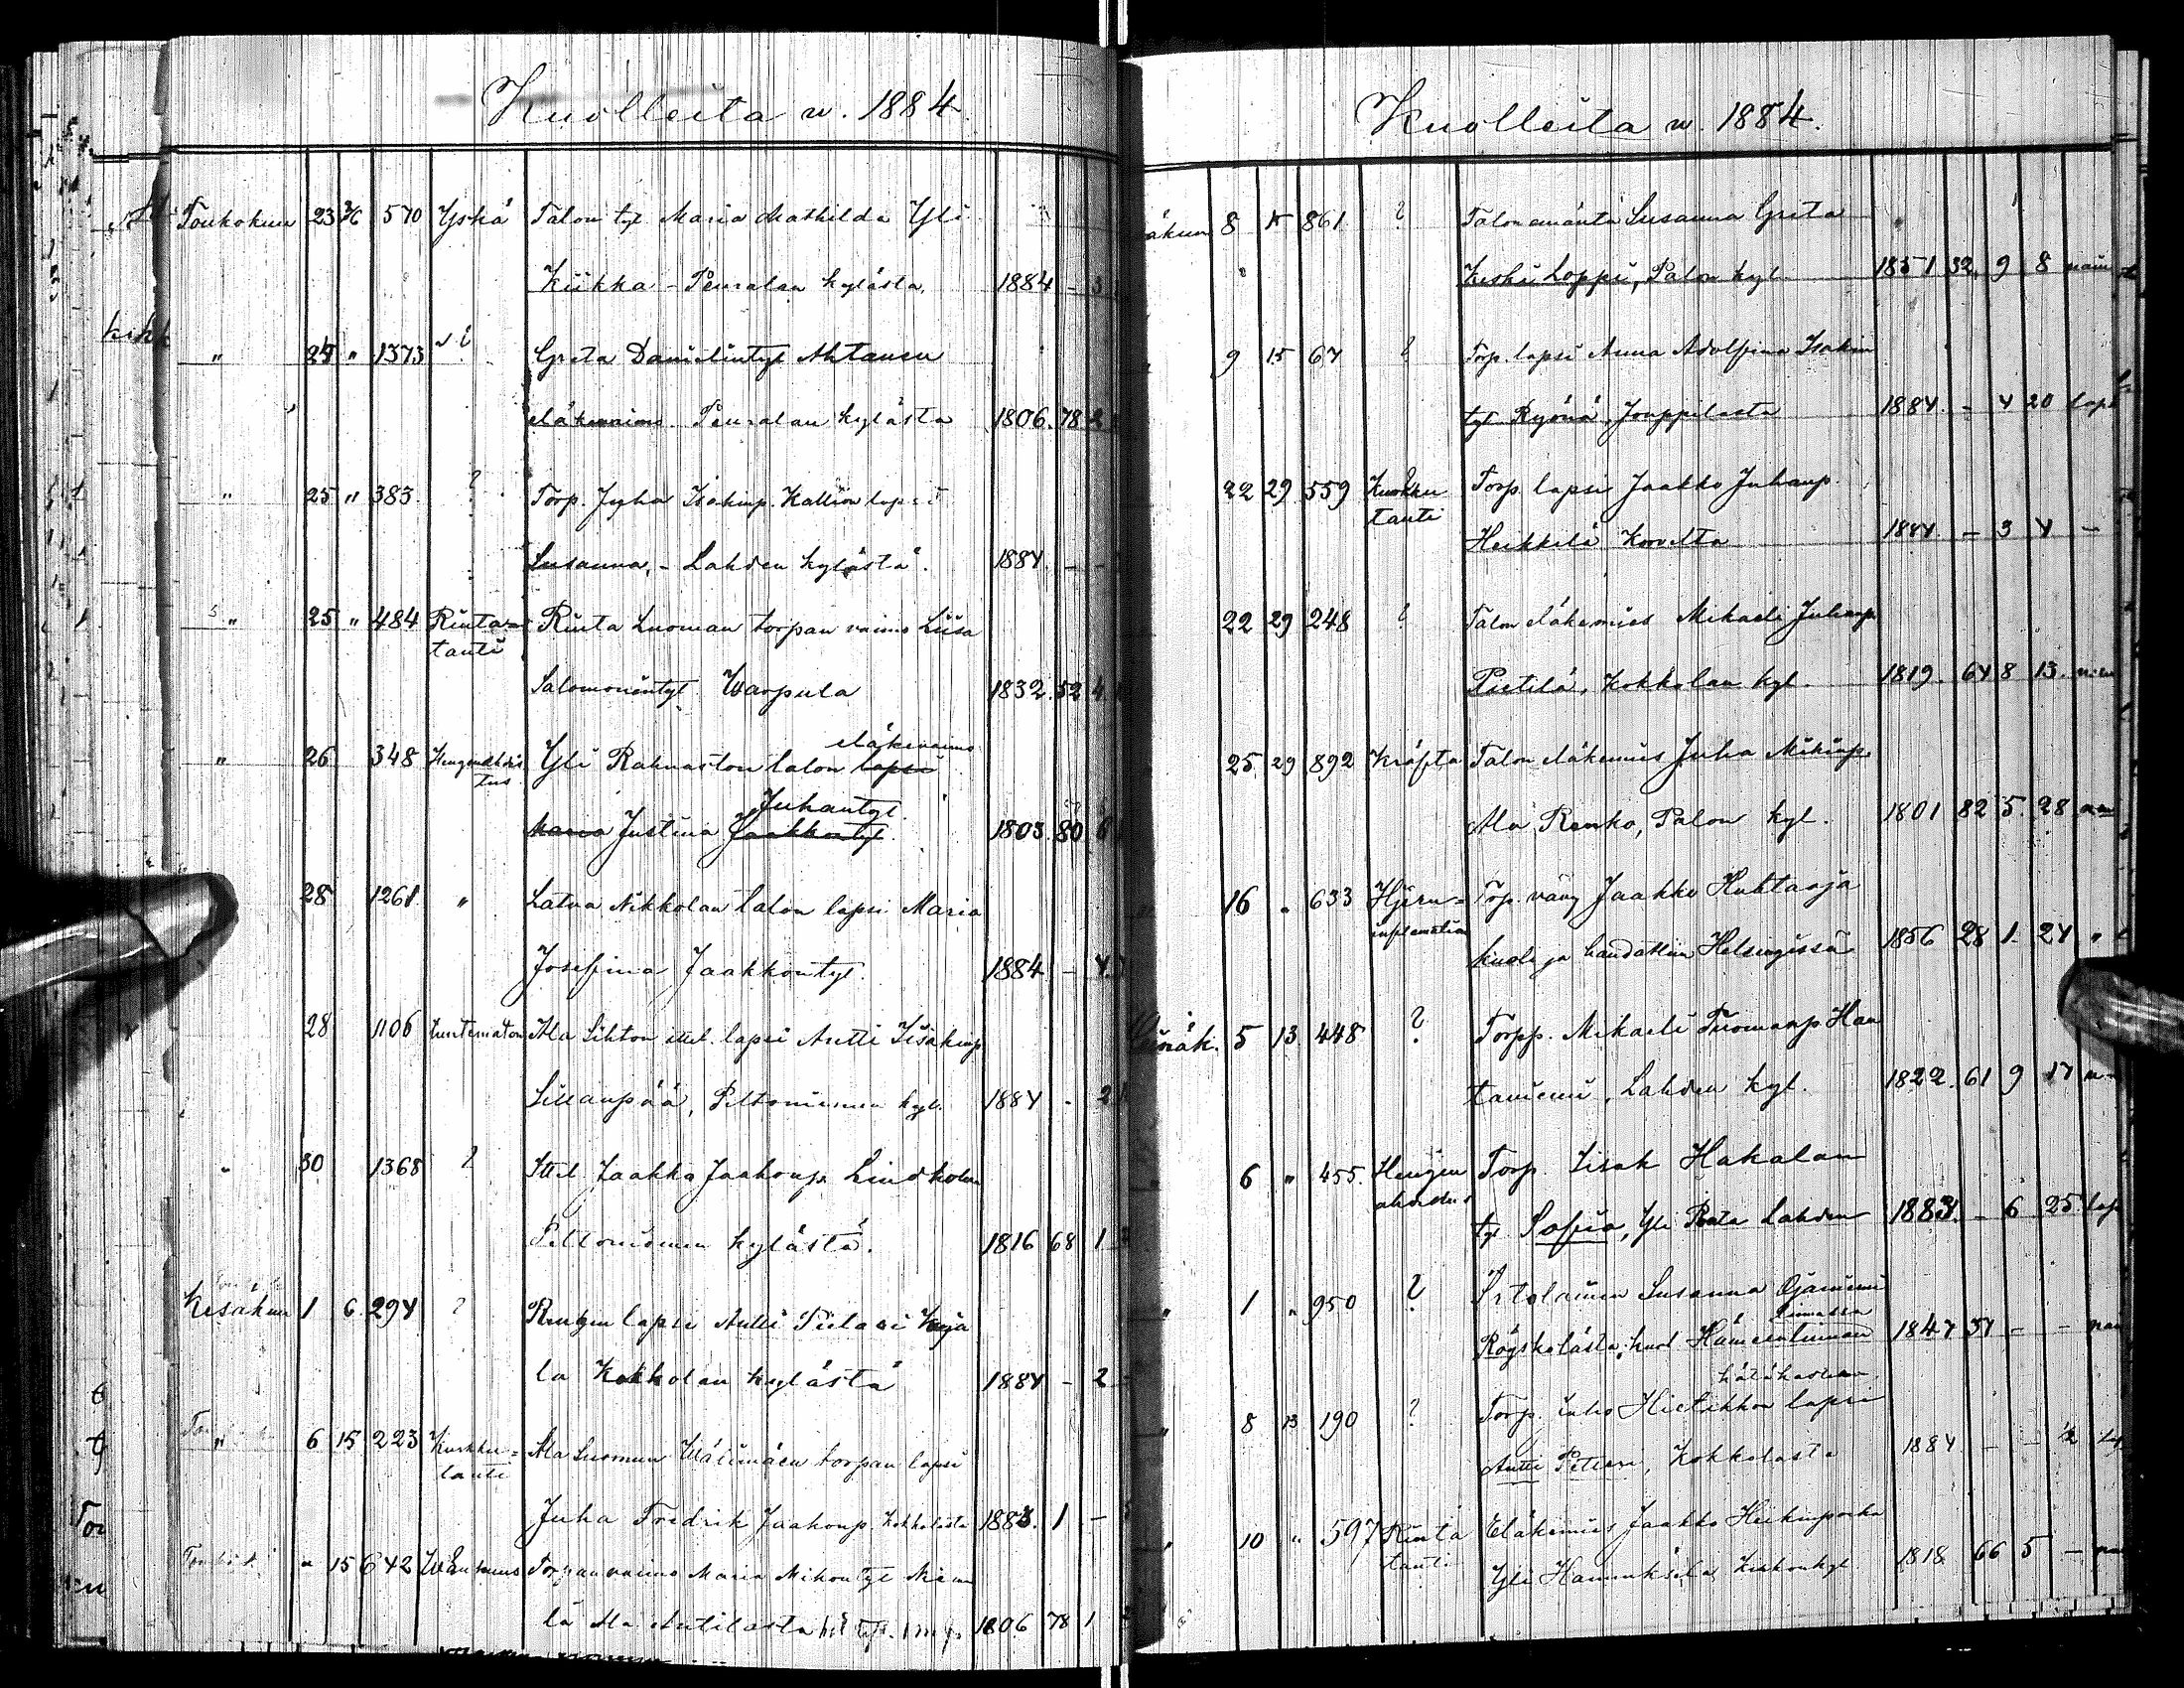 Kuolleita w. 1884.
Toukokuu 23 2/6 570 Yskä Talon tyt Maria Mathilda Yli
Kiikka - Peuralan kylästä, 1884 - 3
" 24 " 1373 ? Greta Danielintyt Ahtanen
eläkevaimo Peuralan kylästä 1806. 78 2
" 25 " 383 ? Torp. Juha Isakinp. Kallion lapsi
Susanna, - Lahden kylästä. 1884 - -
" 25 " 484 Rinta= Rinta Luoman torpan vaimo Liisa
tauti
Salomonintyt Warpula 1832. 52 4
eläkevaimo
" 26 348 Hengenahdis Yli Rahnaston talon lapsi
tus
Juhantyt.
Maria Justina Jaakkontyt 1803. 80 6
28 1261 " Latva Nikkolan talon lapsi Maria
Josefina Jaakkontyt. 1884 - 4.
28 1106 Tuntematon Ala Sihton ittel. lapsi Antti Iisakinp
Sillanpää, Peltoniemen kyl. 1884 - 2
" 30 1368 ? Ittel. Jaakko Jaakonp. Lindholm
Peltoniemen kylästä. 1816 68 1
Kesäkuu 1 6. 294 ? Rengin lapsi Antti Pietari Kuja
la Kokkolan kylästä 1884 - 2
" 6 15 223 Kurkku= Ala Luomun Wälimäen torpan lapsi
tauti
Juha Fredrik Jaakonp. Kokkolasta 1883. 1 -
" 15 642 Wanhuus Torpanvaimo Maria Mikontyt Niem
lä Ala Anttilasta 1806 78 1
Kuolleita w. 1884.
äkuu 8 15 861 ? Talon emäntä Susanna Greta
Keski Loppi, Palon kyl. 1851 32. 9 8 naim
" 9 15 67 ? Torp. lapsi Anna Adolfina Isakin
tyt Ryönä, Jouppilasta 1884. - 4 20 laps
22 29 559 Kurkku Torp. lapsi Jaakko Juhanp.
tauti
Heikkilä Korvelta 1884. - 3 4 -
22 29 248 ? Talon eläkemies Mikaeli Juhanp
Pietilä, Kokkolan kyl. 1819. 64 8 13.
25. 29 892 Kräfta Talon eläkemies Juha Mikinp.
Ala Renko, Palon kyl. 1801 82 5. 28
16 " 633 Hjern= Torp. vävy Jaakko Huhtaoja
inflamation
kuoli ja haudattiin Helsingissä 1856 28 1. 24 "
Heinäk. 5 13 448 ? Torpp. Mikaeli Tuomanp Hau
taniemi, Lahden kyl. 1822. 61 9 17
" 6 " 455. Hengen Torp. Iisak Hakalan
ahdistus
tyt Sofia, Yli Rinta Lahden 1883. - 6 25. lap
" 1 " 950 ? Itsolainen Susanna Ojaniemi
linnassa
Röyskolästä, kuol Hämeenlinnan 1847 37 - -
" 8 13 190 ? Torp. Juho Hietikkon lapsi
Antti Petteri, Kokkolasta 1884. - -
" 10 " 597 Rinta Eläkemies Jaakko Heikinpoika
tauti
Yli Hannuksela, Koskenkyl 1818 66 5 -